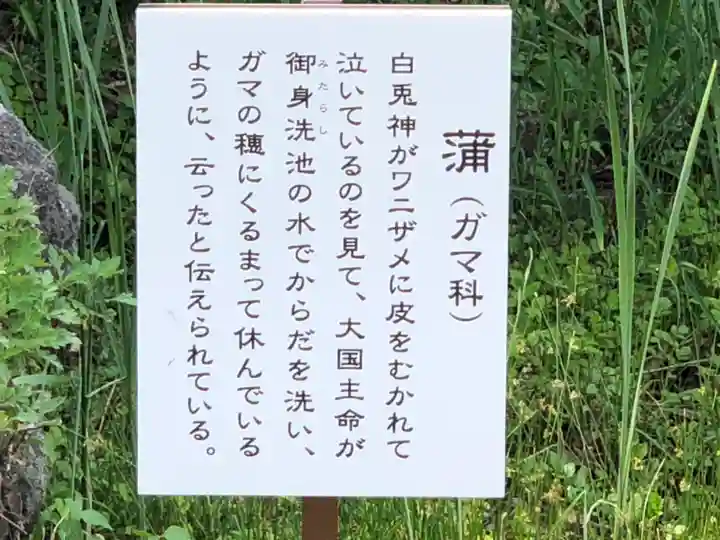 蒲（ガマ科）
白兎神がワニザメに皮をむかれて
泣いているのを見て、大国主命が
御身洗池の水でからだを洗い、
みたらし
ガマの穂にくるまって休んでいる
ように、云ったと伝えられている。